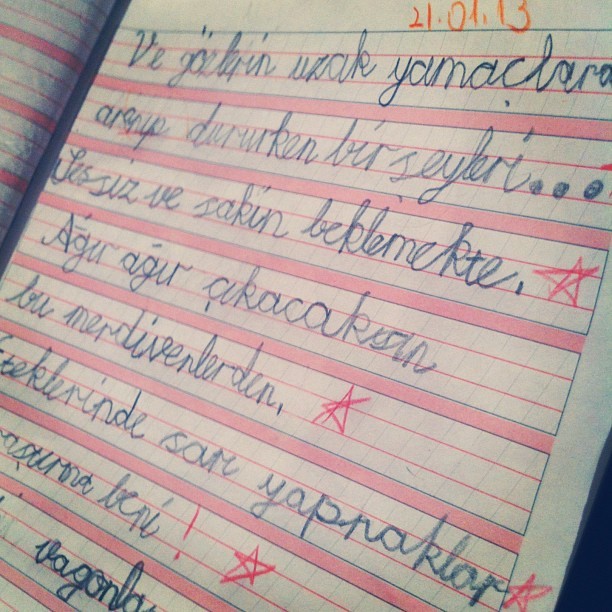 21.01.13
Ve gözlerin uzak yamaçlara
arayıp dururken bir şeyleri...
Sessiz ve sakin beklemekte.
Ağır ağır çıkacaksın
bu merdivenlerden.
Eteklerinde sarı yapraklar
beni!
vagonla